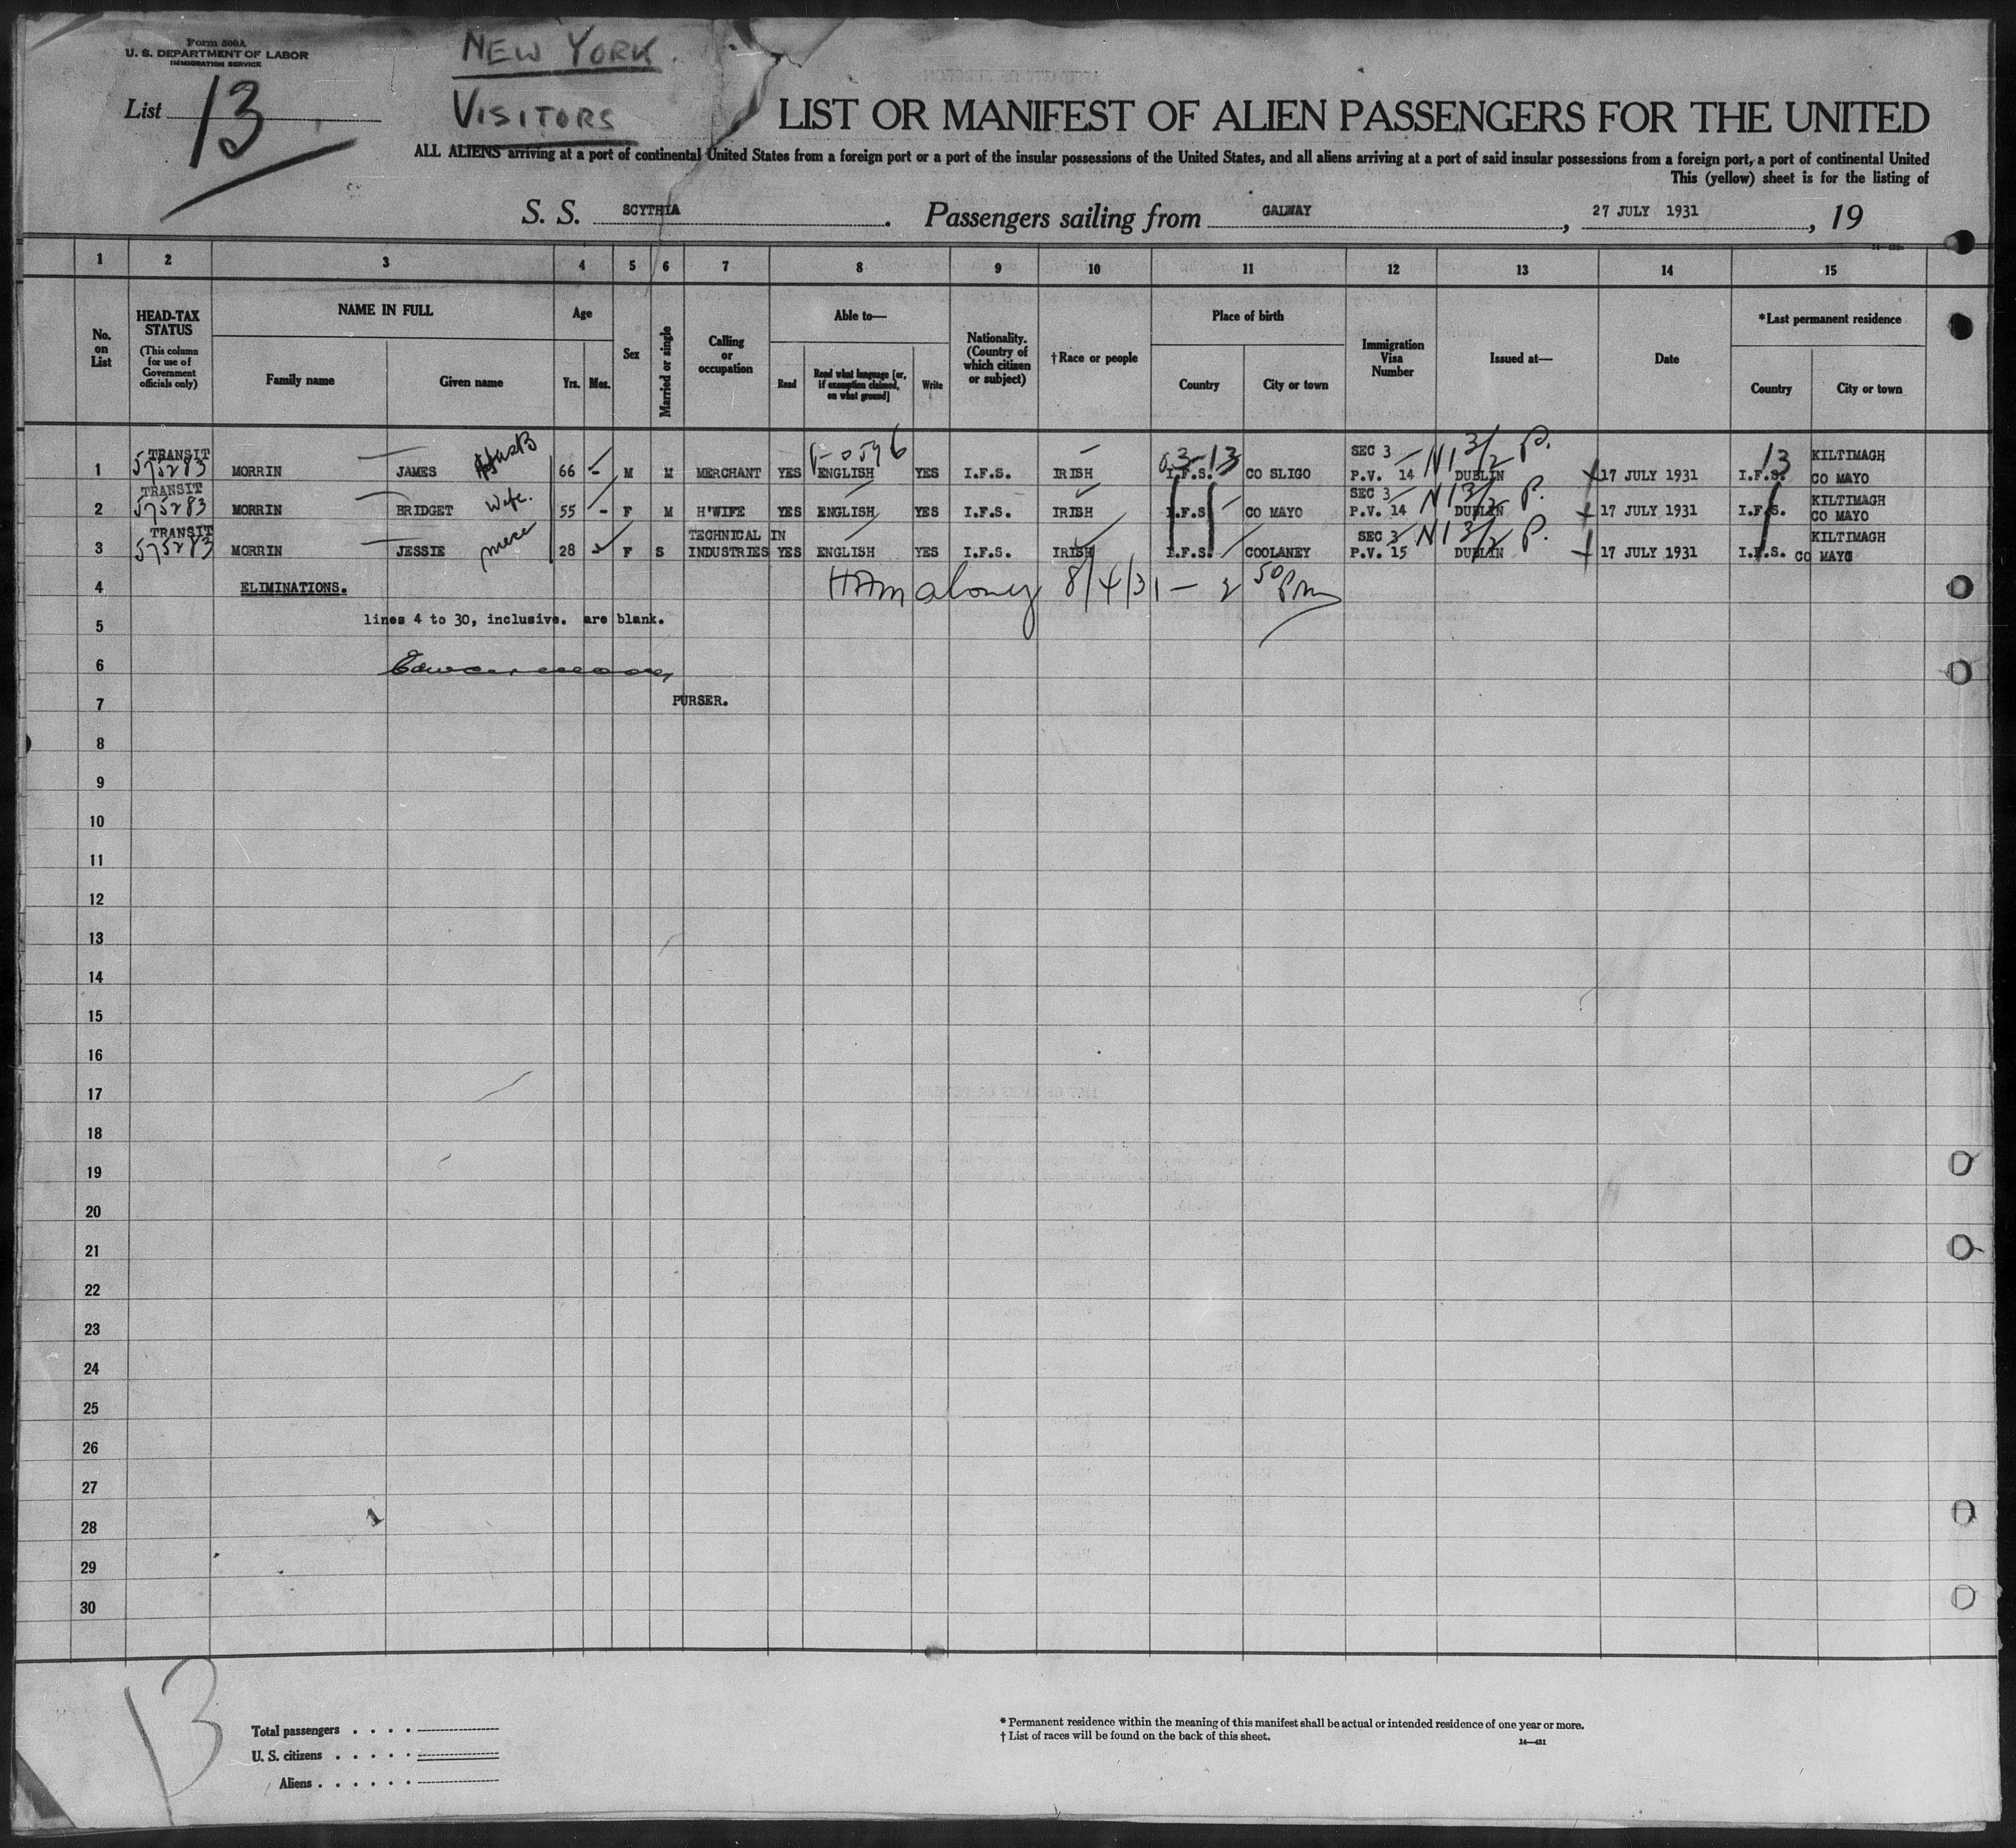 Form 500A
U. S. DEPARTMENT OF LABOR
IMMIGRATION SERVICE
NEW YORK.
VISITORS
List 13
LIST OR MANIFEST OF ALIEN PASSENGERS FOR THE UNITED
ALL ALIENS arriving at a port of continental United States from a foreign port or a port of the insular possessions of the United States, and all aliens arriving at a port of said insular possessions from a foreign port, a port of continental United
This (yellow) sheet is for the listing of
S. S. SCYTHIA. Passengers sailing from GALWAY, 27 JULY 1931, 19
1 2 3 4 5 6 7 8 9 10 11 12 13 14 15
No. on List
HEAD-TAX STATUS
(This column for use of Government officials only)
NAME IN FULL
Family name
Given name
Age
Yrs. Mos.
Sex
Married or single
Calling or occupation
Able to—
Read
Read what language [or, if exemption claimed, on what ground]
Write
Nationality. (Country of which citizen or subject)
†Race or people
Place of birth
Country
City or town
Immigration Visa Number
Issued at—
Date
*Last permanent residence
Country
City or town
1 TRANSIT 575283 MORRIN JAMES 66 - M M MERCHANT YES ENGLISH YES I.F.S. IRISH I.F.S. CO SLIGO SEC 3 P.V. 14 DUBLIN 17 JULY 1931 I.F.S. KILTIMAGH CO MAYO
2 TRANSIT 575283 MORRIN BRIDGET Wife. 55 - F M H'WIFE YES ENGLISH YES I.F.S. IRISH I.F.S. CO MAYO SEC 3 P.V. 14 DUBLIN 17 JULY 1931 I.F.S. KILTIMAGH CO MAYO
3 TRANSIT 575283 MORRIN JESSIE 28 F S TECHNICAL IN INDUSTRIES YES ENGLISH YES I.F.S. IRISH I.F.S. COOLANEY SEC 3 P.V. 15 DUBLIN 17 JULY 1931 I.F.S. KILTIMAGH CO MAYO
4 ELIMINATIONS. Maloney 8/4/31 — 2 50 Pm
5 lines 4 to 30, inclusive. are blank.
6
7 PURSER.
8
9
10
11
12
13
14
15
16
17
18
19
20
21
22
23
24
25
26
27
28
29
30
13
Total passengers . . . .
U. S. citizens . . . . .
Aliens . . . . . .
* Permanent residence within the meaning of this manifest shall be actual or intended residence of one year or more.
† List of races will be found on the back of this sheet.
14—431